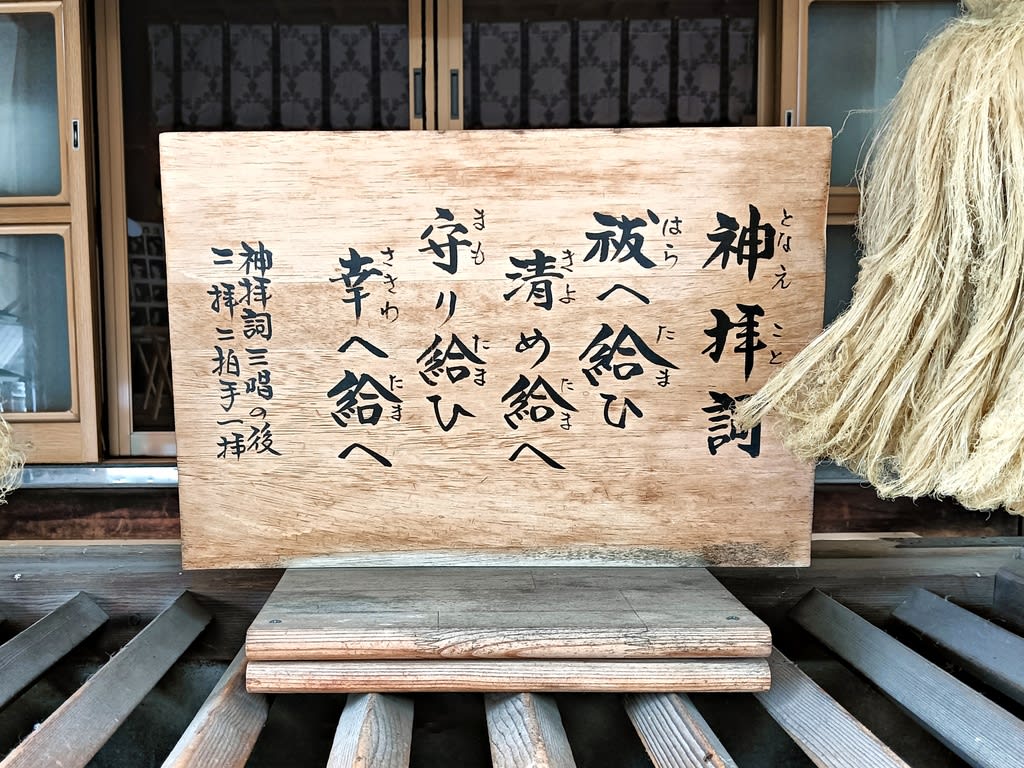 神拝詞
となえ こと
祓へ給ひ
はら たま
清め給へ
きよ たま
守り給ひ
まも たま
幸へ給へ
さきわ たま
神拝詞三唱の後
二拝二拍手一拝